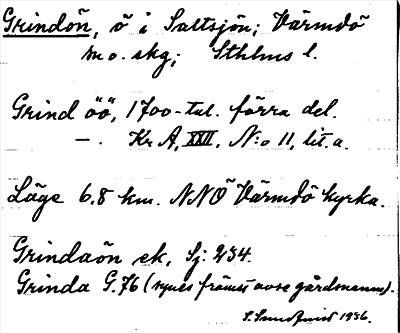 Grindön, ö i Saltsjön; Värmdö
m o. skg; Sthlms l.
Grind öö, 1700-tal. förra del.
—. Kr A, XXII, N:o 11, lit. a.
Läge 6.8 km. NNO Värmdö kyrka.
Grindaön ek, Sj: 234.
Grinda G.76 (synes främst avse gårdsnamn).
S. Sundqvist 1936.